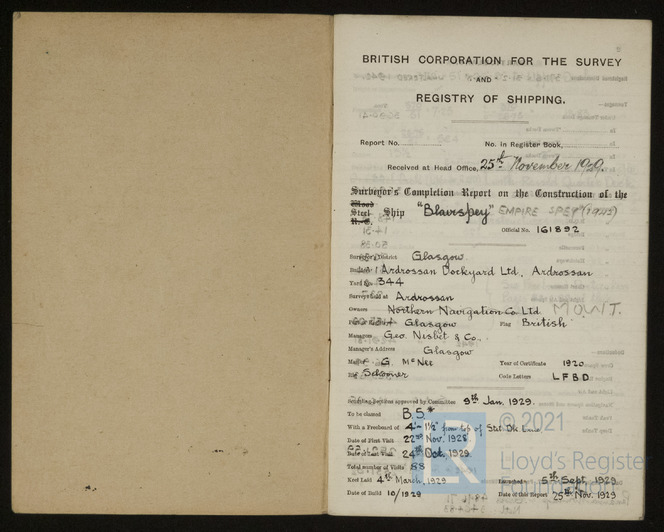 BRITISH CORPORATION FOR THE SURVEY
AND
REGISTRY OF SHIPPING.
Report No. No. in Register Book,
Received at Head Office, 25th November 1929.
Surveyor's Completion Report on the Construction of the
Wood
Steel Ship "Blairspey" EMPIRE SPEY (1942)
R.C.
Official No. 161892
Surveyor's District Glasgow
Builder Ardrossan Dockyard Ltd, Ardrossan
Yard No. 344
Surveys held at Ardrossan
Owners Northern Navigation Co. Ltd. M.O.W.T.
Port of Glasgow Flag British
Managers Geo. Nisbet & Co.
Manager's Address Glasgow
Master G. McNee Year of Certificate 1920
Rig Schooner Code Letters LFBD
approved by Committee 9th Jan. 1929.
To be classed B.S.*
With a Freeboard of 4'-1½" from top of Stat. Dk Line
Date of First Visit 22nd Nov. 1928.
Date of Last Visit 24th Oct. 1929.
Total number of Visits 88
Keel Laid 4th March, 1929 Launched 5th Sept. 1929
Date of Build 10/1929 Date of this Report 25th Nov. 1929
© 2021
LR
Lloyd's Register
Foundation